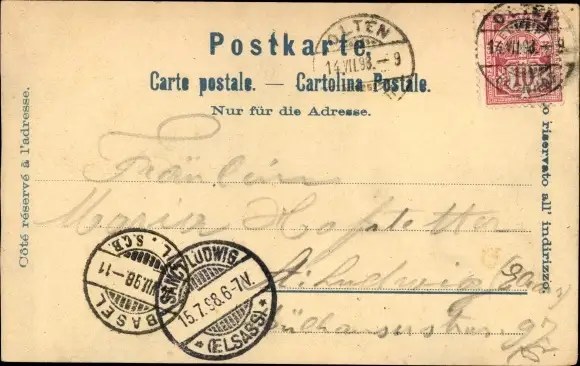 Postkarte.
OLTEN
14.VII.98.-9
OLTEN
14.VII.98.-9
10
Carte postale. — Cartolina Postale.
Nur für die Adresse.
Côté réservé à l'adresse.
o riservato all' indirizzo.
Fräulein
Maria Hofstetter
St. Ludwig
Mülhauserstr. 97
BASEL
VII.98.-11
L.S.C.B.
SANCT LUDWIG
15.7.98.6-7N.
* (ELSASS) *